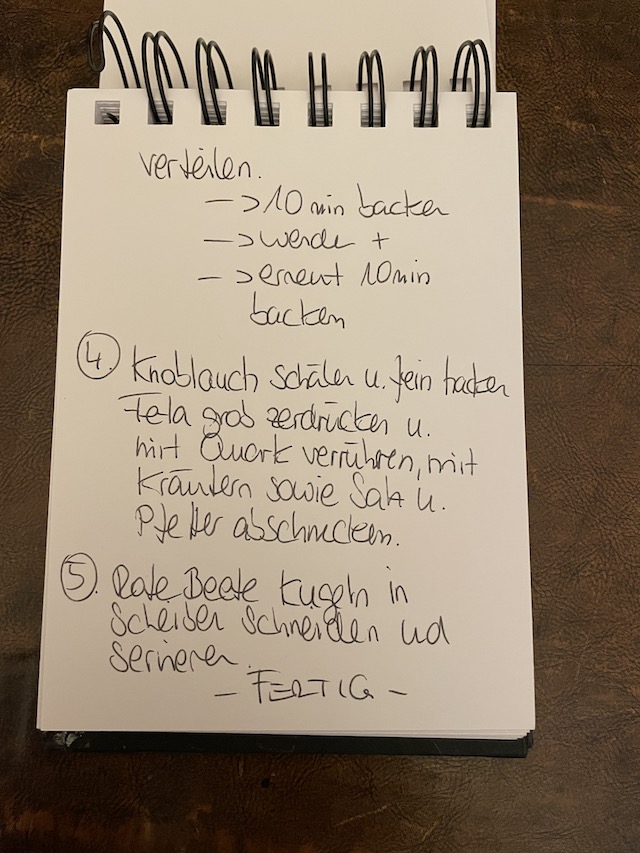 verteilen.
—> 10 min backen
—> wenden +
—> erneut 10 min
backen
4. Knoblauch schälen u. fein hacken
Feta grob zerdrücken u.
mit Quark verrühren, mit
Kräutern sowie Salz u.
Pfeffer abschmecken.
5. Rote Beete Kugeln in
Scheiben schneiden und
servieren.
— FERTIG —